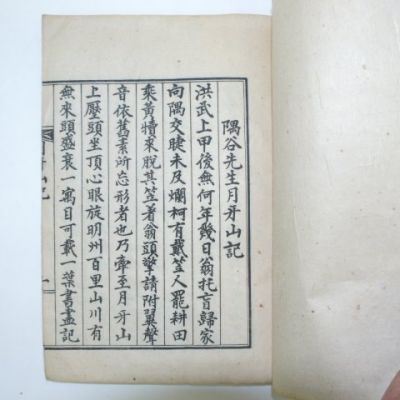 隅谷先生月牙山記
洪武上甲後無何年幾日翁托盲歸家
向隅交睫未及爛柯有戴笠人罷耕田
乘黃犢來脫其笠著翁頭擎請附翼聲
音依舊素所忘形者也乃牽至月牙山
上壓頭坐頂心眼旋明州百里山川有
無來頭盛衰一寓目可載一葉書盡記
月牙山記
一